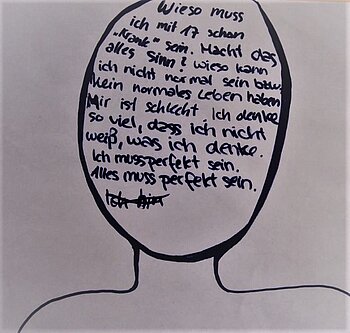 Wieso muss
ich mit 17 schon
„Krank" sein. Macht das
alles Sinn? Wieso kann
ich nicht normal sein bzw.
kein normales Leben haben
Mir ist schlecht ich denke
so viel, dass ich nicht
weiß, was ich denke.
Ich muss perfekt sein.
Alles muss perfekt sein.
Ich bin